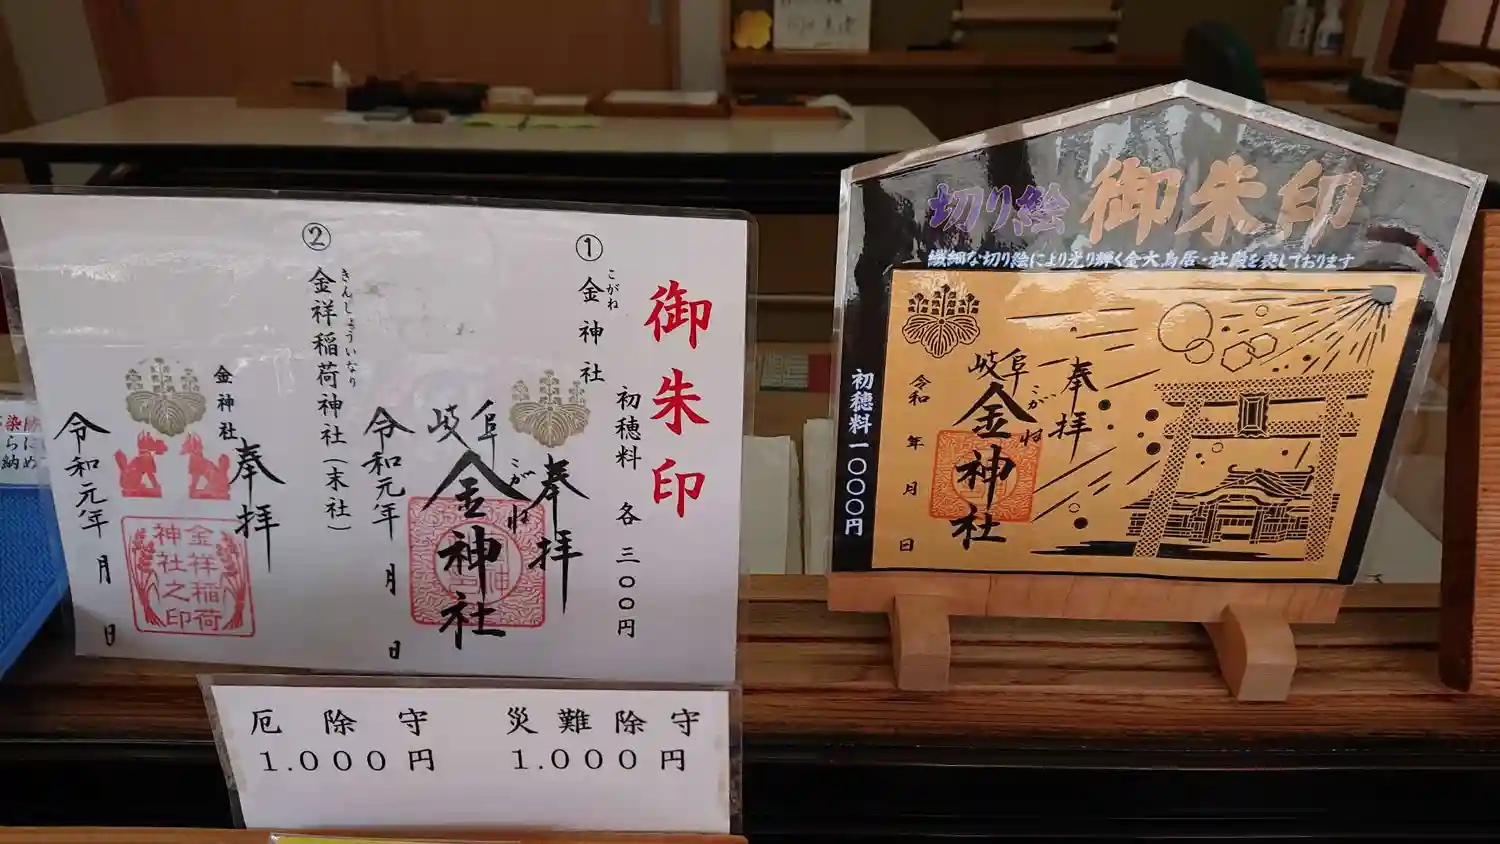 御朱印
① 金神社
こがね
初穂料 各 三〇〇円
奉拝
岐阜
金神社
こがね
令和元年 月 日
② 金祥稲荷神社(末社)
きんしょういなり
金神社
奉拝
金祥稲荷
神社之印
令和元年 月 日
厄除守
1.000円
災難除守
1.000円
切り絵 御朱印
繊細な切り絵により光り輝く金大鳥居・社殿を表しております
初穂料一〇〇〇円
奉拝
岐阜
金神社
こがね
令和 年 月 日